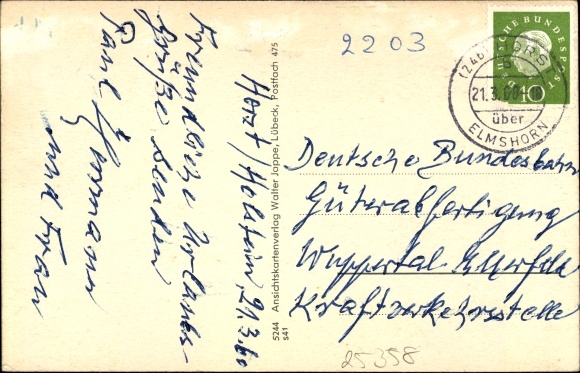 2203
Horst/Holstein, 21.3.60
Freundliche Urlaubs-
grüße senden
Paul
und Frau
5244 Ansichtskartenverlag Walter Jappe, Lübeck, Postfach 475
s41
DEUTSCHE BUNDESPOST
10
(24b) HORST
21.3.60
über
ELMSHORN
Deutsche Bundesbahn
Güterabfertigung
Wuppertal-Elberfeld
Kraftverkehrsstelle
25358